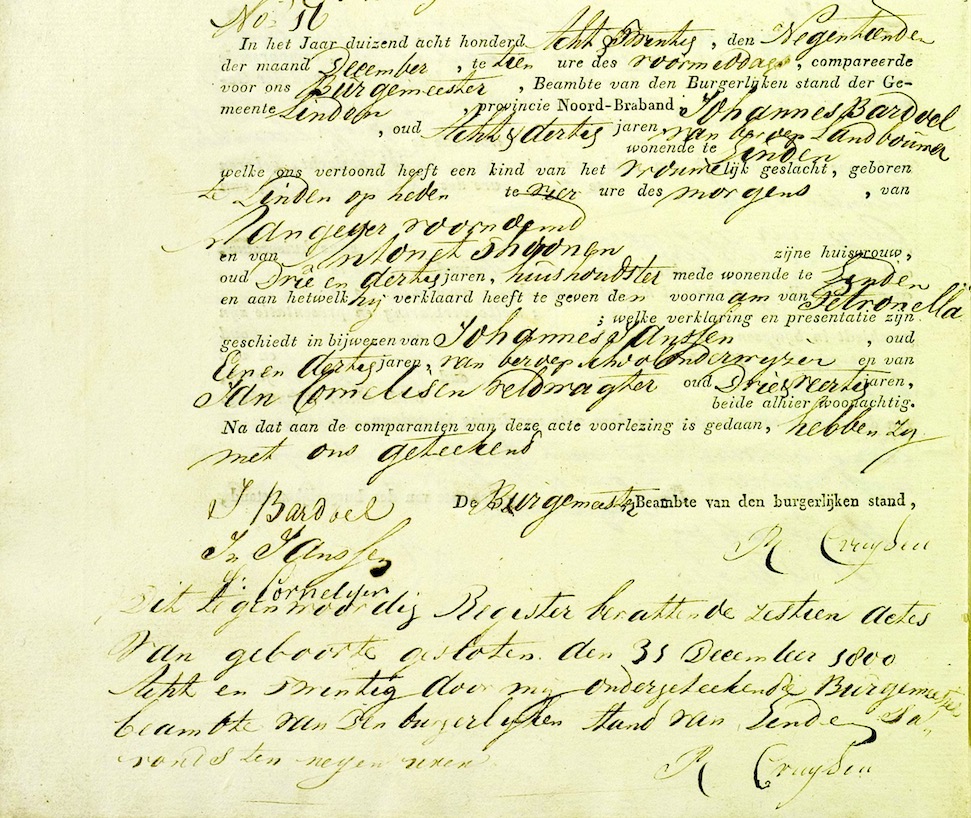 No: 16
In het Jaar duizend acht honderd Acht & Twintig, den Negentienden
der maand December, te tien ure des voormiddags, compareerde
voor ons Burgemeester, Beambte van den Burgerlijken stand der Ge-
meente Linden, provincie Noord-Braband; Johannes Bardoel
, oud Acht & dertig jaren, van beroep Landbouwer
wonende te Linden
welke ons vertoond heeft een kind van het vrouwelijk geslacht, geboren
te Linden op heden te vier ure des morgens, van
Aangever voornoemd
en van Antonet zijne huisvrouw,
oud Drie en dertig jaren, huishoudster mede wonende te Linden
en aan hetwelk hij verklaard heeft te geven den voornaam van Petronella
; welke verklaring en presentatie zijn
geschiedt in bijwezen van Johannes Janssen, oud
Een en dertig jaren, van beroep schoolonderwyzer en van
Jan Cornelissen veldwagter oud Drie & veertig jaren,
beide alhier woonachtig.
Na dat aan de comparanten van deze acte voorlezing is gedaan, hebben zy
met ons geteekend
J Bardoel De Burgemeester Beambte van den burgerlijken stand,
Jn Janssen R. Cruysen
J: Cornelissen
Dit tegenwoordig Register bevattende zestien actes
van geboorte gesloten den 31 December 1800
Acht en twintig door my ondergeteekende Burgemeester
beambte van den burgerlyken stand van Linden Sa
vonds ten negen uren
R Cruysen